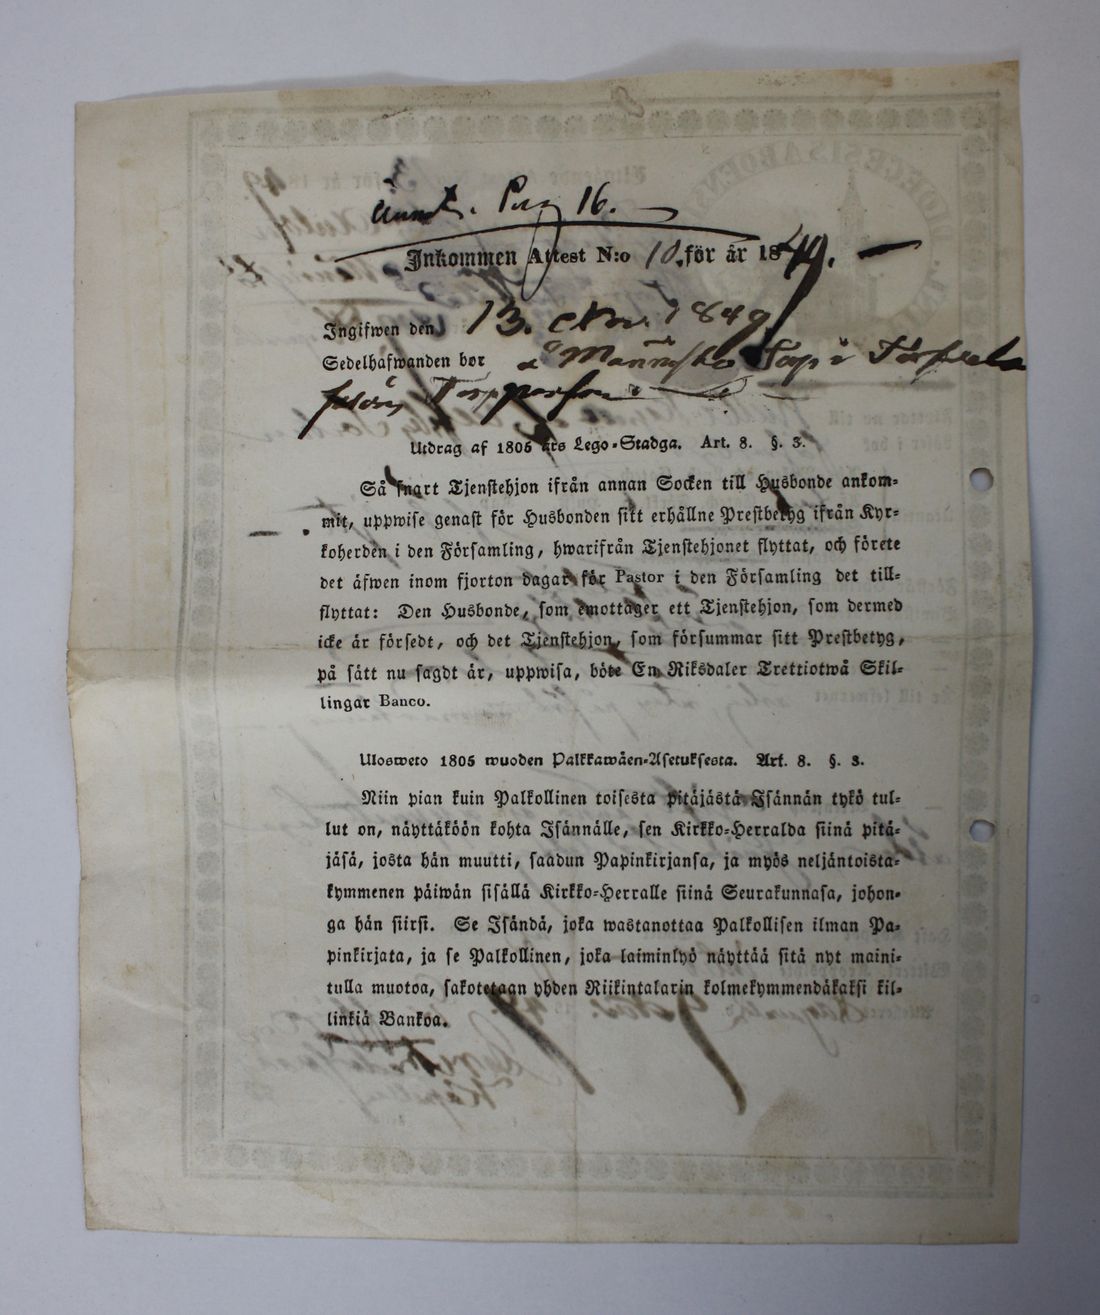 Annot. Pag 16.
Inkommen Attest N:o 10. för år 1849.
Ingifwen den 13. Nov. 1849
Sedelhafwanden bor å Männistö Torp i
Utdrag af 1805 års Lego-Stadga. Art. 8. §. 3.
Så snart Tjenstehjon ifrån annan Socken till Husbonde ankom-
mit, uppwise genast för Husbonden sitt erhållne Prestbetyg ifrån Kyr-
koherden i den Församling, hwarifrån Tjenstehjonet flyttat, och förete
det äfwen inom fjorton dagar för Pastor i den Församling det till-
flyttat: Den Husbonde, som emottager ett Tjenstehjon, som dermed
icke är försedt, och det Tjenstehjon, som försummar sitt Prestbetyg,
på sätt nu sagdt är, uppwisa, böte En Riksdaler Trettiotwå Skil-
lingar Banco.
Ulosweto 1805 wuoden Palkkawäen-Asetuksesta. Art. 8. §. 3.
Niin pian kuin Palkollinen toisesta pitäjästä Isännän tykö tul-
lut on, näyttäköön kohta Isännälle, sen Kirkko-Herralda siinä pitä-
jäsä, josta hän muutti, saadun Papinkirjansa, ja myös neljäntoista-
kymmenen päiwän sisällä Kirkko-Herralle siinä Seurakunnasa, johon-
ga hän siirsi. Se Isändä, joka wastanottaa Palkollisen ilman Pa-
pinkirjata, ja se Palkollinen, joka laiminlyö näyttää sitä nyt maini-
tulla muotoa, sakotetaan yhden Riikintalarin kolmekymmendäkaksi kil-
linkiä Bankoa.